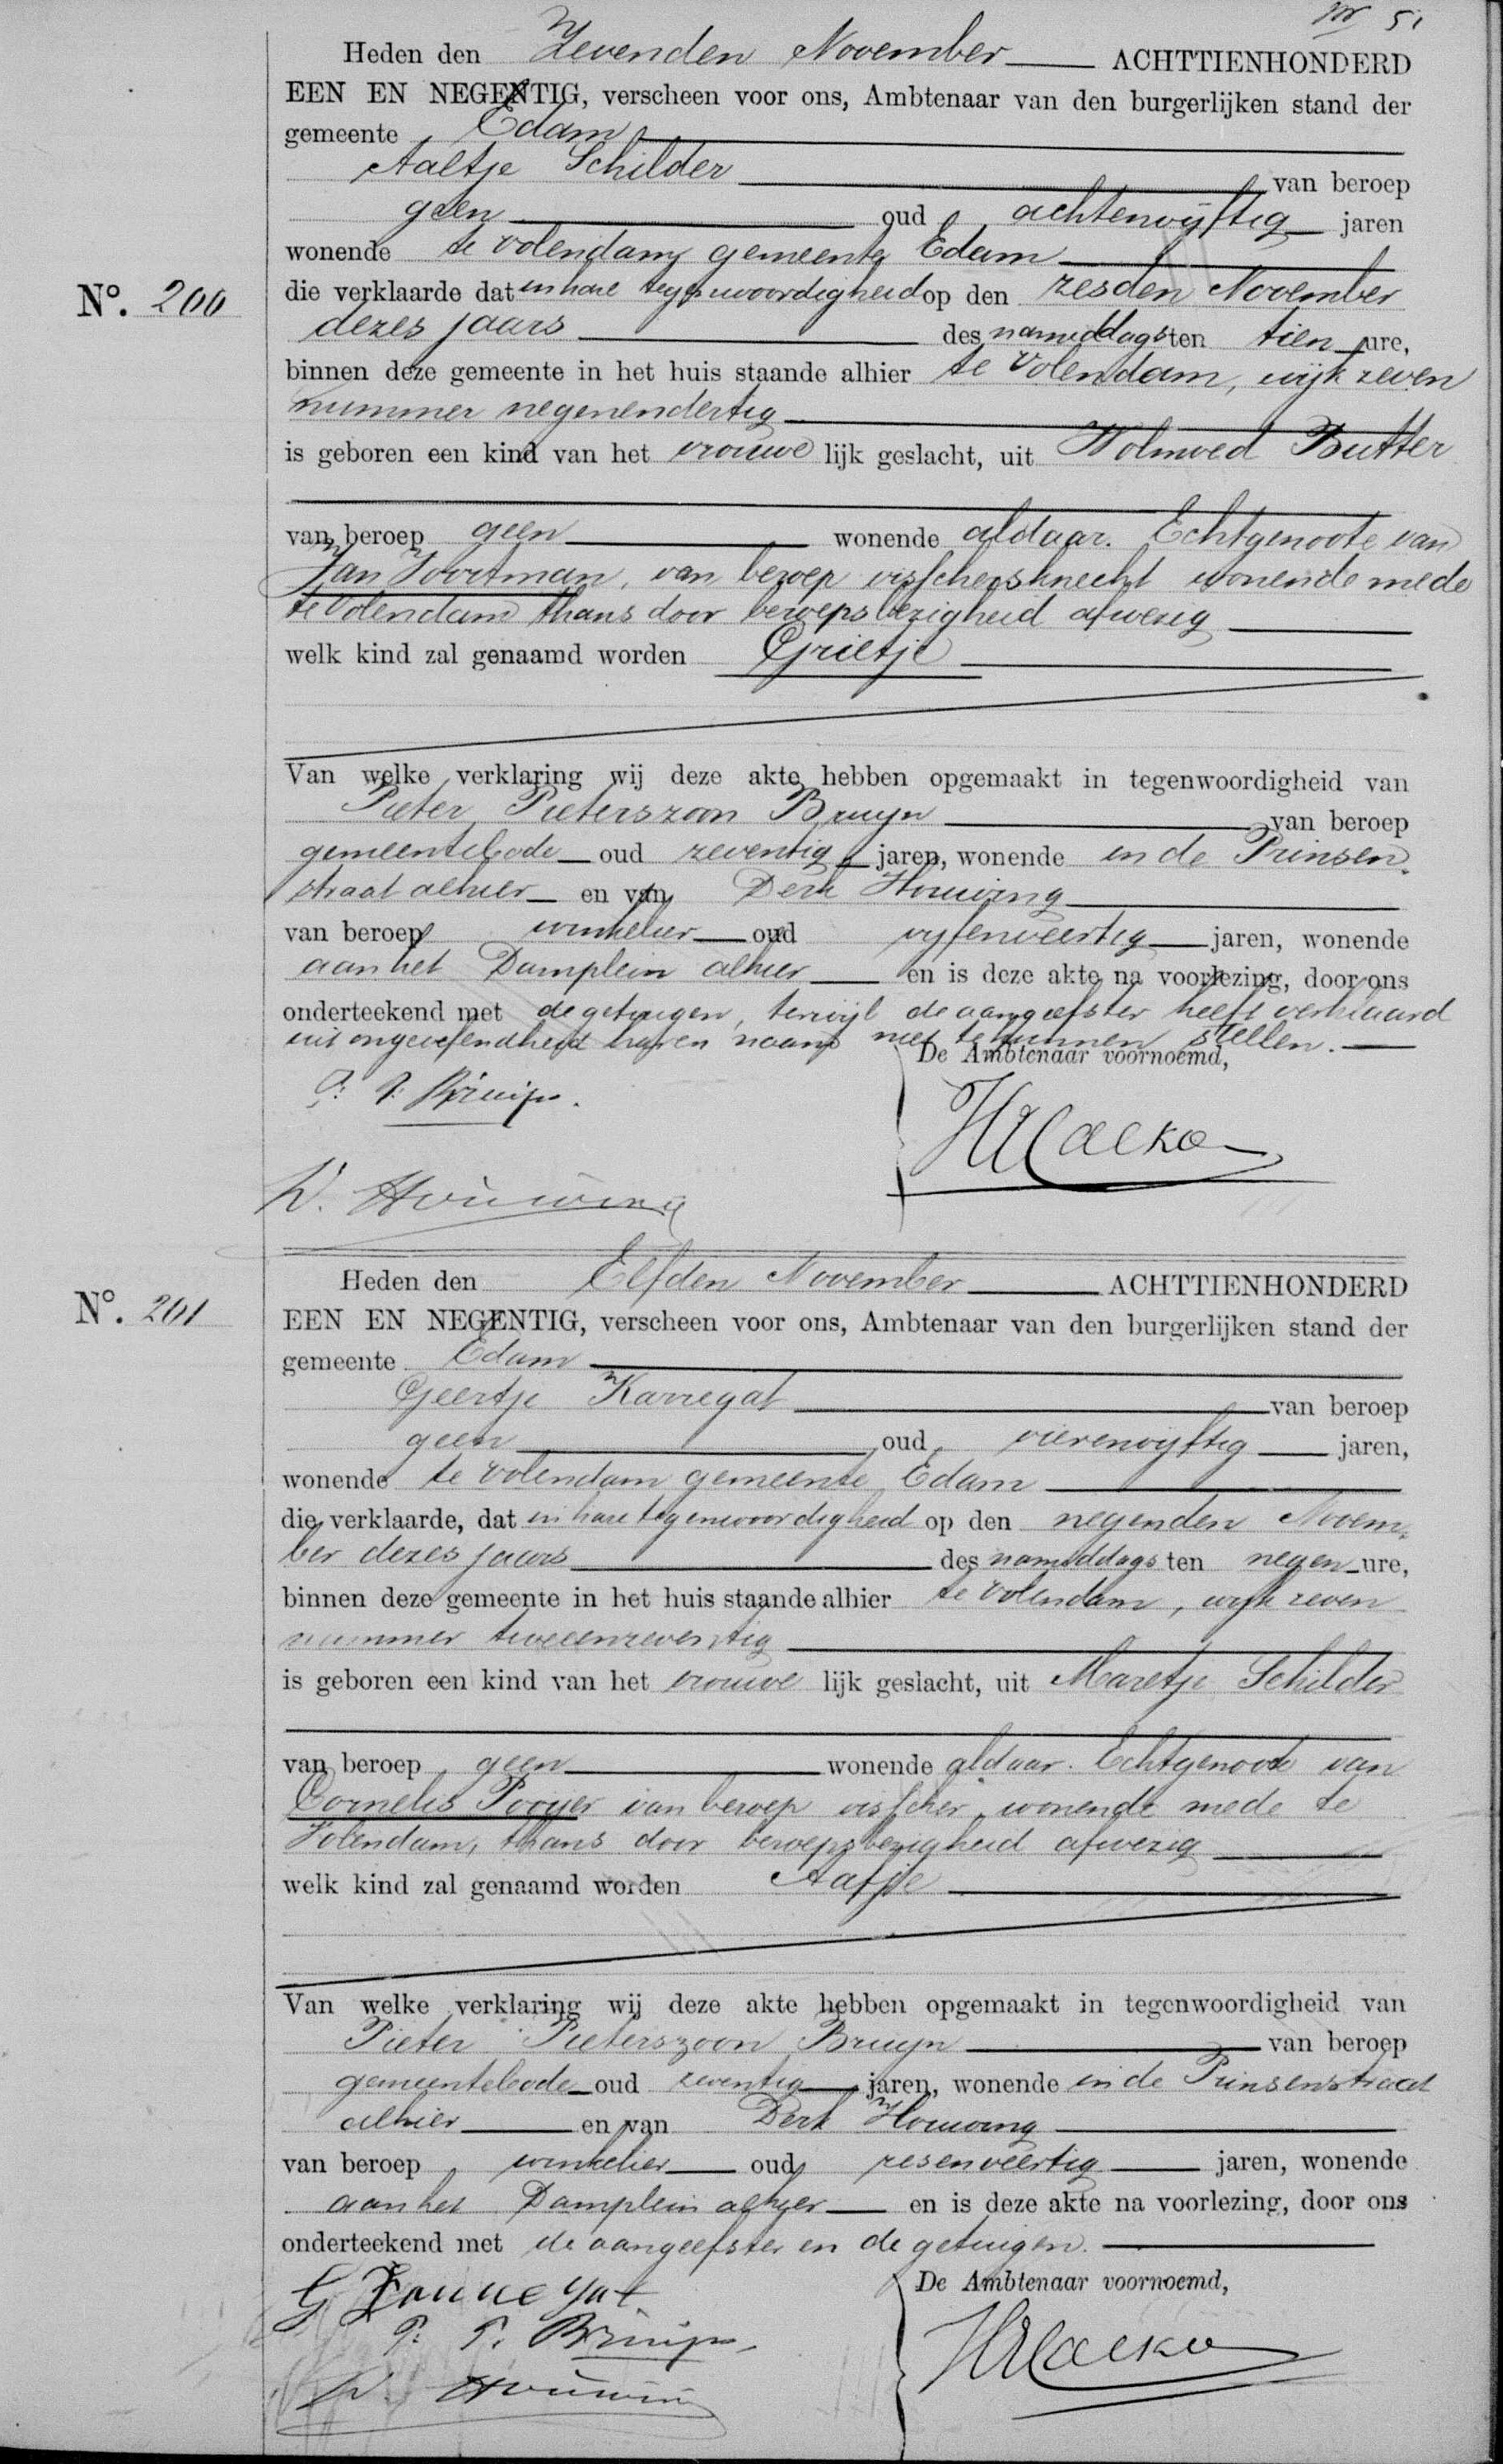 51
Heden den Zevenden November ACHTTIENHONDERD
EEN EN NEGENTIG, verscheen voor ons, Ambtenaar van den burgerlijken stand der
gemeente Edam
Aaltje Schilder van beroep
geen oud achtenvijftig jaren
wonende te Volendam gemeente Edam
No. 200
die verklaarde dat in hare tegenwoordigheid op den zesden November
dezes jaars des namiddags ten tien ure,
binnen deze gemeente in het huis staande alhier te Volendam, wijk zeven
nummer negenendertig
is geboren een kind van het vrouwe lijk geslacht, uit Wolmoed Butter
van beroep geen wonende aldaar. Echtgenoote van
Jan Voortman, van beroep visschersknecht wonende mede
te Volendam thans door beroepsbezigheid afwezig
welk kind zal genaamd worden Grietje
Van welke verklaring wij deze akte hebben opgemaakt in tegenwoordigheid van
Pieter Pieterszoon Bruyn van beroep
gemeentebode oud zeventig jaren, wonende in de Prinsen
straat alhier en van Derk Houwing
van beroep winkelier oud vyfenveertig jaren, wonende
aan het Damplein alhier en is deze akte na voorlezing, door ons
onderteekend met de getuigen, terwijl de aangeefster heeft verklaard
uit ongeoefendheid haren naam niet te kunnen stellen.
De Ambtenaar voornoemd,
P. P. Bruijn.
HCalkoen
D. Houwing
Heden den Elfden November ACHTTIENHONDERD
No. 201
EEN EN NEGENTIG, verscheen voor ons, Ambtenaar van den burgerlijken stand der
gemeente Edam
Geertje Karregat van beroep
geen oud vierenvijftig jaren,
wonende te Volendam gemeente Edam
die verklaarde, dat in hare tegenwoordigheid op den negenden Novem-
ber dezes jaars des namiddags ten negen ure,
binnen deze gemeente in het huis staande alhier te Volendam, wijk zeven
nummer tweeenzeventig
is geboren een kind van het vrouwe lijk geslacht, uit Maretje Schilder
van beroep geen wonende aldaar. Echtgenoote van
Cornelis Pooyer van beroep visscher, wonende mede te
Volendam, thans door beroepsbezigheid afwezig
welk kind zal genaamd worden Aafje
Van welke verklaring wij deze akte hebben opgemaakt in tegenwoordigheid van
Pieter Pieterszoon Bruyn van beroep
gemeentebode oud zeventig jaren, wonende in de Prinsenstraat
alhier en van Derk Houwing
van beroep winkelier oud zesenveertig jaren, wonende
aan het Damplein alhier en is deze akte na voorlezing, door ons
onderteekend met de aangeefster en de getuigen.
De Ambtenaar voornoemd,
G Karregat
P. P. Bruijn.
HCalkoen
D. Houwing